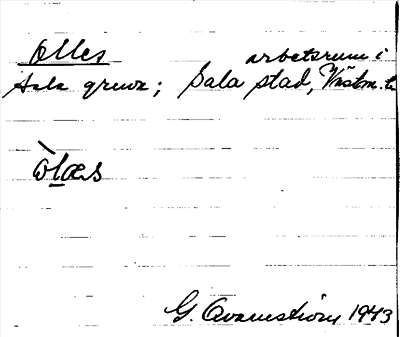 Olles arbetsrum i
Sala gruva; Sala stad, Västm. l.
òlæs
G. Qvarnström 1943